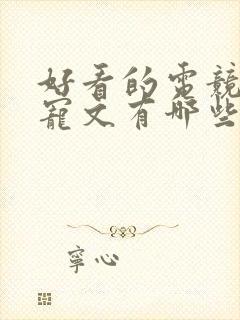 好看的電競
寵文有哪些
寧心